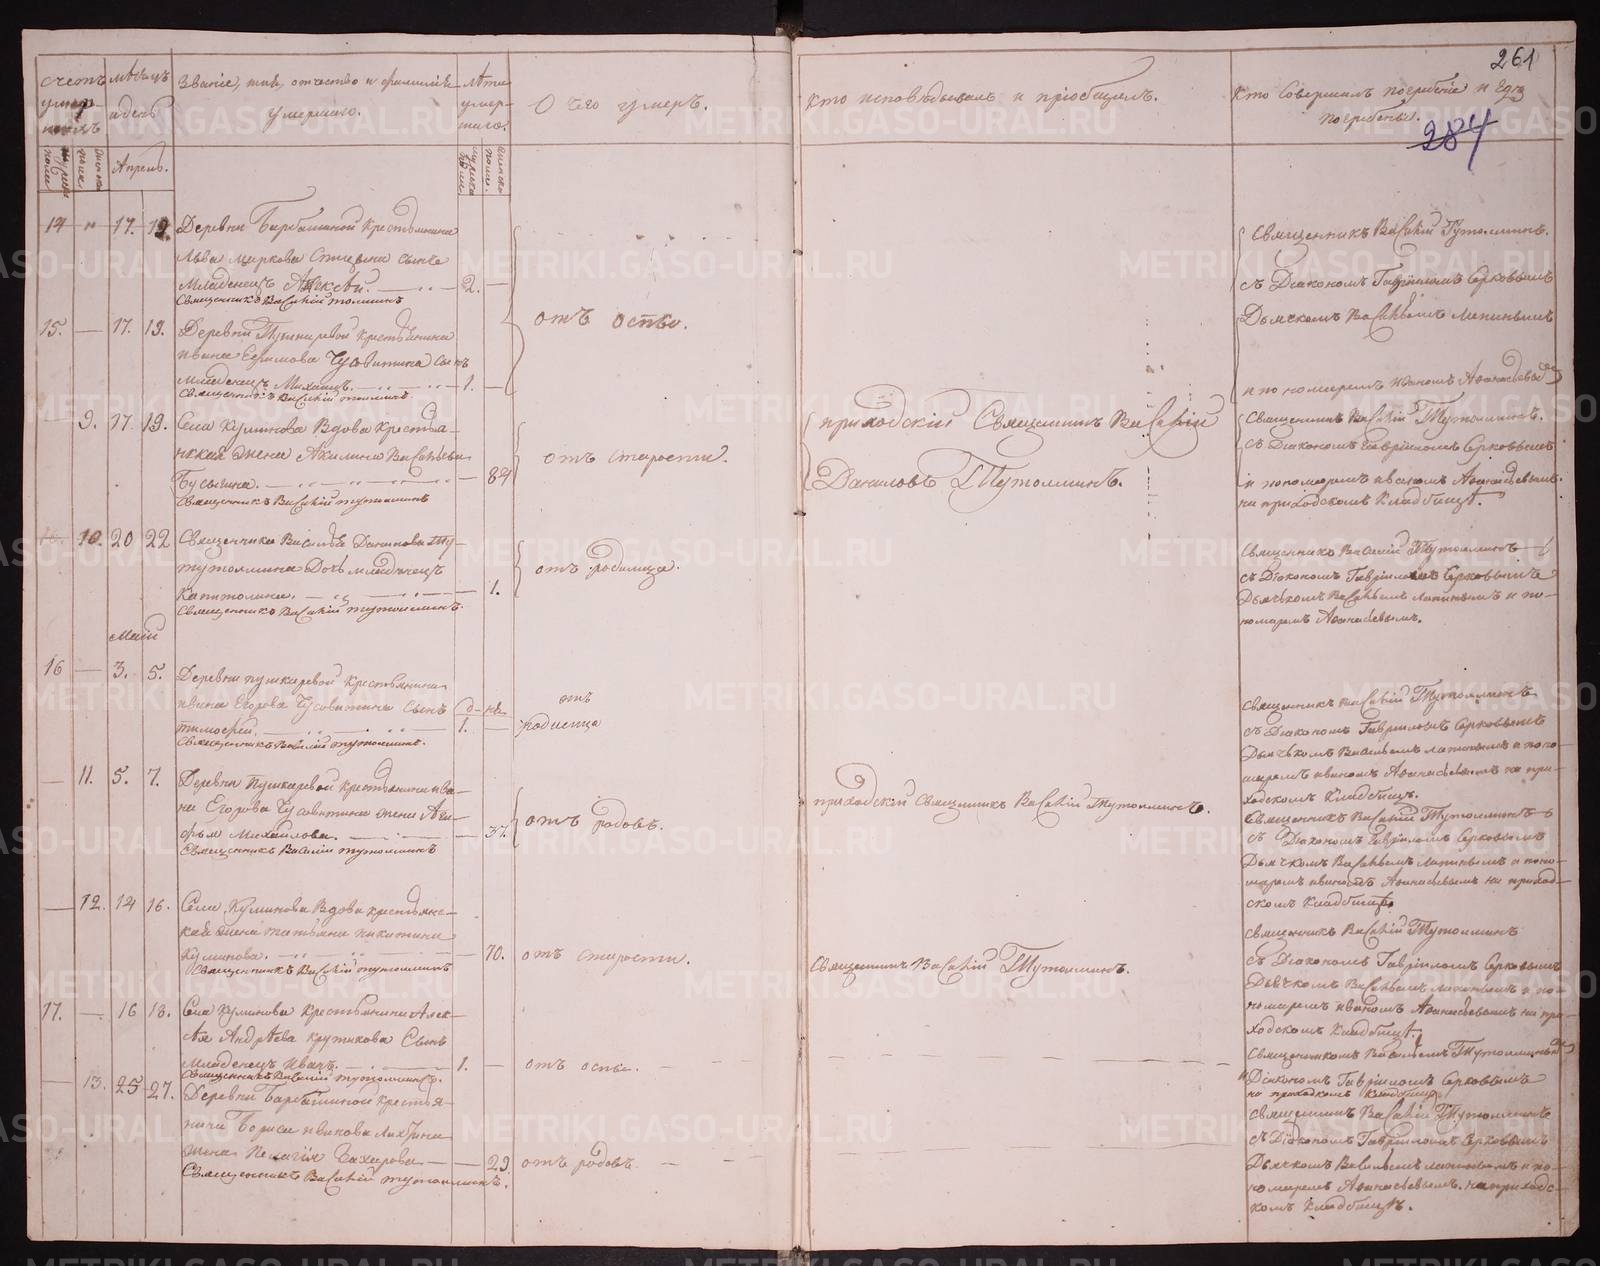 261
284
счетъ умер-
мѣсяцъ и день
Званіе, имя, отчество и фамилія умершаго.
лѣта умер-шаго.
Отъ чего умеръ.
Кто исповѣдывалъ и пріобщалъ.
Кто совершалъ погребеніе и гдѣ погребены.
Апрель.
14 " 17. 19. Деревни Барбашиной Крестьянина
Льва Маркова Спицына сынъ
Младенецъ Алексѣй. 2.
Священникъ Василій
отъ оспы.
Священникъ Василій Тутолминъ.
съ Діакономъ Гавріиломъ Серковымъ
Дьячкомъ Васильемъ Лапинымъ
и пономаремъ Иваномъ Аѳанасьевы
15. — 17. 19. Деревни Пушкаревой Крестьянина
Ивана Чусовитина сынъ
младенецъ Михаилъ. 1.
Священникъ Василій
9. 17 19. Села Куминова Вдова Крестья-
нская жена Акилина Васильева
Бусыгина. 84
Священникъ Василій Тутолминъ
отъ старости.
приходскій Священникъ Василій
Даниловъ Тутолминъ.
Священникъ Василій Тутолминъ.
съ Діакономъ Гавріиломъ Серковымъ
и пономаремъ Иваномъ Аѳанасьевымъ.
на приходскомъ Кладбищѣ.
10. 20 22 Священника Василья Данилова Ту-
тутолмина Дочь младенецъ
Капитолина. 1.
Священникъ Василій Тутолминъ.
отъ родимца.
Священникъ Василій Тутолминъ
съ Діакономъ Гавріиломъ Серковымъ
Дьячкомъ Васильемъ Лапинымъ и по-
номаремъ Аѳанасьевымъ.
Маій
16 — 3. 5. Деревни пушкаревой Крестьянина
Ивана Егорова Чусовитина сынъ
Тимофей. 1.
Священникъ Василій Тутолминъ.
отъ
родимца
Священникъ Василій Тутолминъ
съ Діакономъ Гавріиломъ Серковымъ
Дьячкомъ Васильемъ Лапинымъ и поно-
маремъ Иваномъ Аѳанасьевымъ на при-
ходскомъ Кладбищѣ.
— 11. 5. 7. Деревни Пушкаревой крестьянина Ива-
на Егорова Чусовитина жена Ага-
фья Михайлова. 37.
Священникъ Василій Тутолминъ
отъ родовъ.
приходскій Священникъ Василій Тутолминъ.
Священникъ Василій Тутолминъ
съ Діакономъ Гавріиломъ Серковымъ
Дьячкомъ Васильемъ Лапинымъ и поно-
маремъ Иваномъ Аѳанасьевымъ на приход-
скомъ Кладбищѣ.
— 12. 14 16. Села Куминова Вдова крестьянс-
кая жена Татьяна Никитина
Куминова. 70.
Священникъ Василій Тутолминъ
отъ старости.
Священникъ Василій Тутолминъ.
Священникъ Василій Тутолминъ
съ Діакономъ Гавріиломъ Серковымъ
Дьячкомъ Васильемъ Лапинымъ и по-
номаремъ Иваномъ Аѳанасьевымъ на при-
ходскомъ Кладбищѣ.
17. — 16 18. Села Куминова Крестьянина Алек-
ѣя Андрѣева Крутикова Сынъ
Младенецъ Иванъ. 1.
Священникъ Василій Тутолминъ.
отъ оспы.
Священникомъ Васильемъ Тутолминым
Діакономъ Гавріиломъ Серковымъ
на приходскомъ Кладбищѣ
— 13. 25 27. Деревни Барбашиной Крестья-
нина Бориса Иванова Лихтина
жена Пелагія Захарова 29.
Священникъ Василій Тутолминъ.
отъ родовъ.
Священникъ Василій Тутолминъ
съ Діакономъ Гавріиломъ Серковымъ
Дьячкомъ Васильемъ Лапинымъ и по-
номаремъ Аѳанасьевымъ. на приходс-
комъ Кладбищѣ.
METRIKI.GASO-URAL.RU